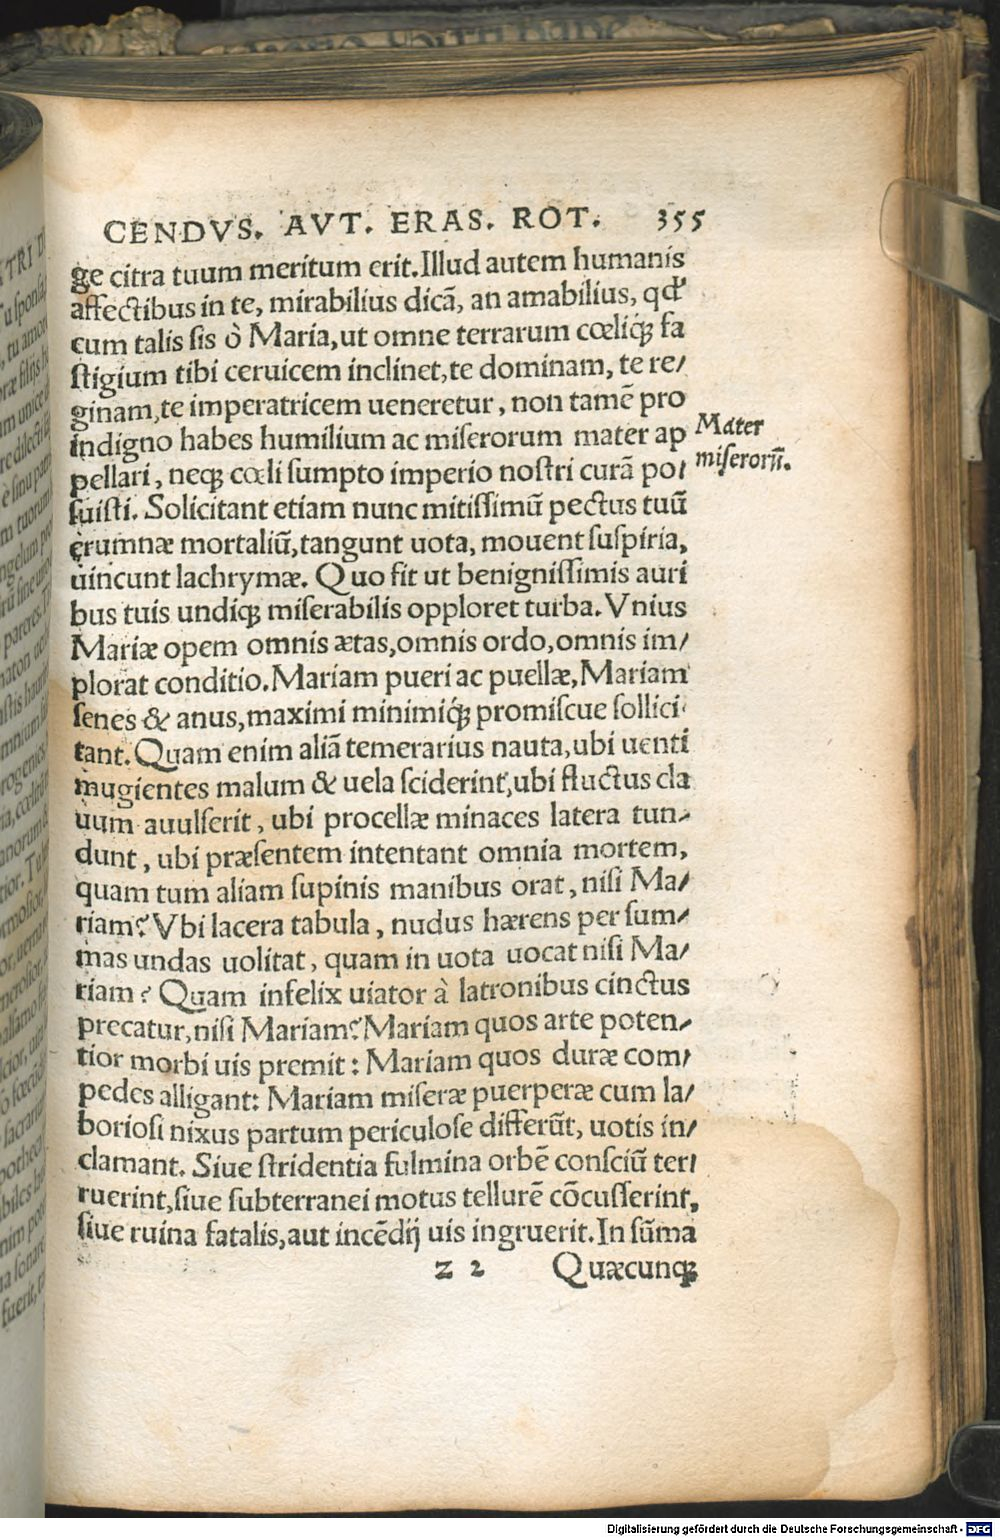 CENDVS. AVT. ERAS. ROT. 355
ge citra tuum meritum erit. Illud autem humanis
affectibus in te, mirabilius dicā, an amabilius, qđ
cum talis sis ò Maria, ut omne terrarum cœliq́ꝫ fa
stigium tibi ceruicem inclinet, te dominam, te re/
ginam, te imperatricem ueneretur, non tamē pro
indigno habes humilium ac miserorum mater ap
pellari, neqꝫ cœli sumpto imperio nostri curā po/
suisti. Solicitant etiam nunc mitissimū pectus tuū
ęrumnæ mortaliū, tangunt uota, mouent suspiria,
uincunt lachrymæ. Quo fit ut benignissimis auri
bus tuis undiqꝫ miserabilis opploret turba. Vnius
Mariæ opem omnis ætas, omnis ordo, omnis im/
plorat conditio. Mariam pueri ac puellæ, Mariam
senes & anus, maximi minimiq́ꝫ promiscue sollici/
tant. Quam enim aliā temerarius nauta, ubi uenti
mugientes malum & uela sciderint, ubi fluctus cla
uum auulserit, ubi procellæ minaces latera tun/
dunt, ubi præsentem intentant omnia mortem,
quam tum aliam supinis manibus orat, nisi Ma/
riam? Vbi lacera tabula, nudus hærens per sum/
mas undas uolitat, quam in uota uocat nisi Ma/
riam? Quam infelix uiator à latronibus cinctus
precatur, nisi Mariam? Mariam quos arte poten/
tior morbi uis premit: Mariam quos duræ com/
pedes alligant: Mariam miseræ puerperæ cum la/
boriosi nixus partum periculose differūt, uotis in/
clamant. Siue stridentia fulmina orbē consciū ter/
ruerint, siue subterranei motus tellurē cōcusserint,
siue ruina fatalis, aut incēdij uis ingruerit. In sūma
z 2 Quæcunqꝫ
Mater
miserorū.
Digitalisierung gefördert durch die Deutsche Forschungsgemeinschaft - DFG